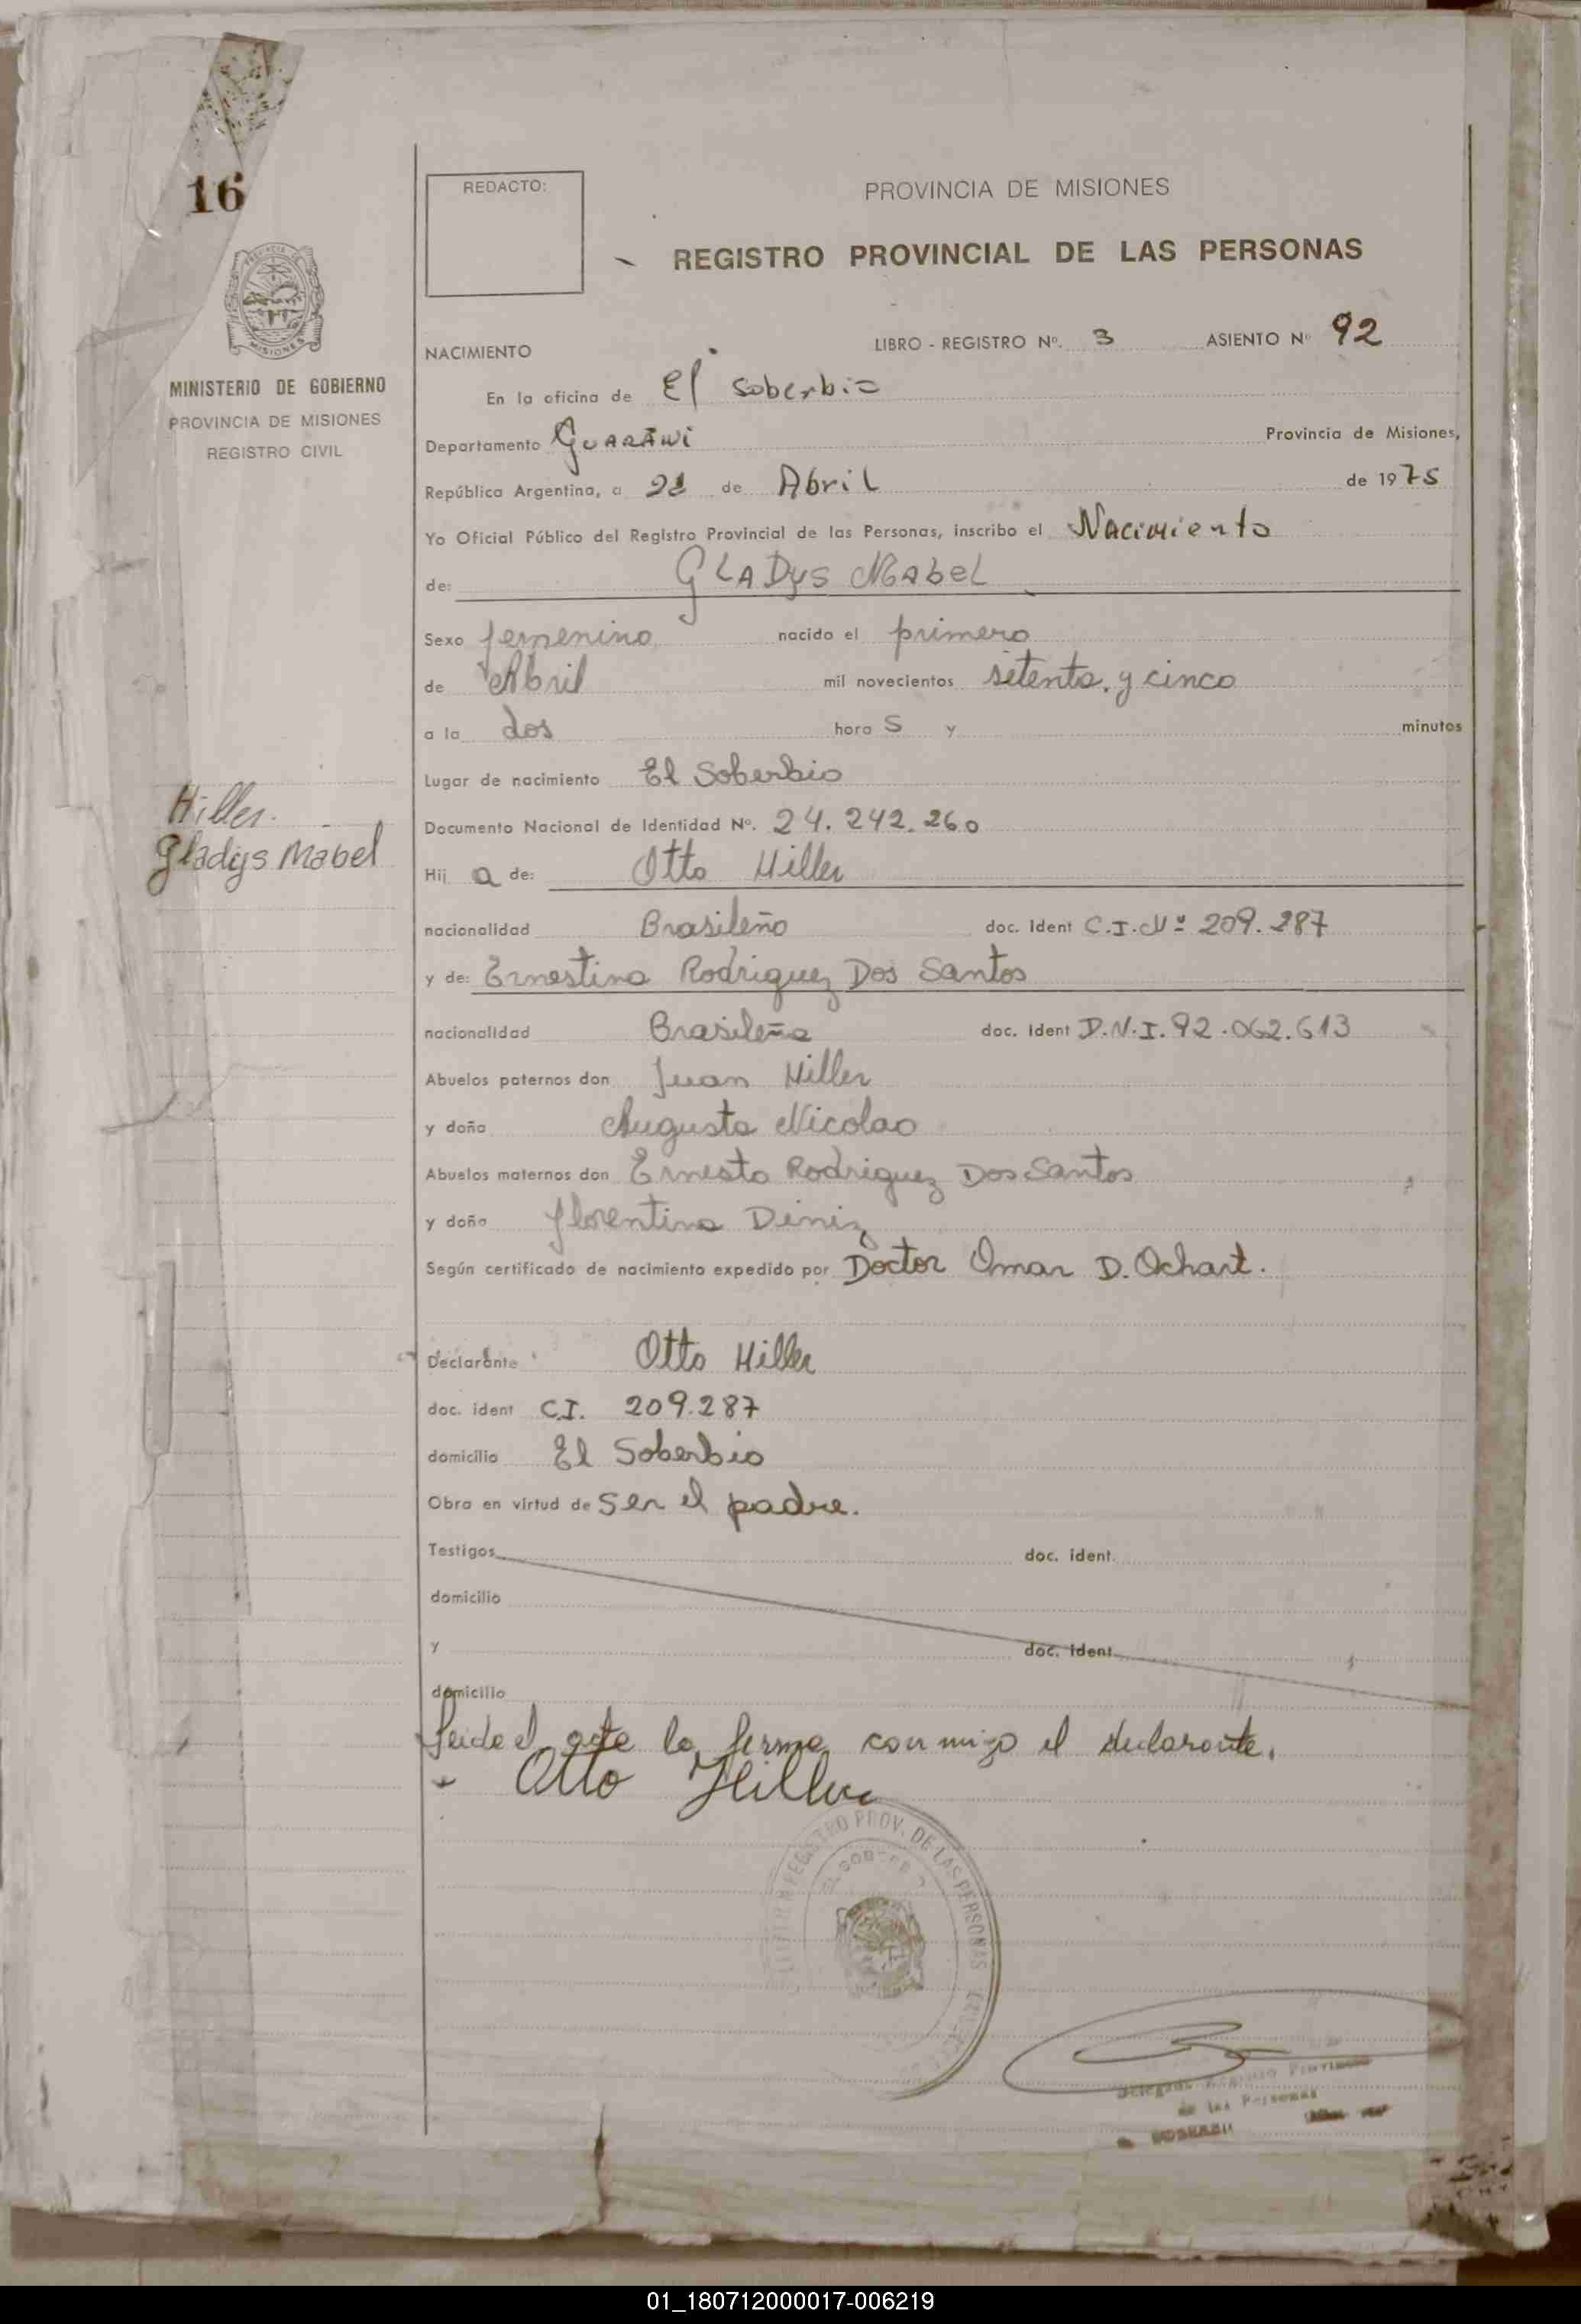 16
REDACTO:
PROVINCIA DE MISIONES
REGISTRO PROVINCIAL DE LAS PERSONAS
MISIONES
MINISTERIO DE GOBIERNO
PROVINCIA DE MISIONES
REGISTRO CIVIL
NACIMIENTO
LIBRO - REGISTRO Nº. 3 ASIENTO Nº 92
En la oficina de El Soberbio
Departamento Guaraní Provincia de Misiones,
República Argentina, a de Abril de 1975
Yo Oficial Público del Registro Provincial de las Personas, inscribo el Nacimiento
de: GLADys MabeL
Sexo femenino nacido el primero
de Abril mil novecientos setenta y cinco
a la dos hora s y minutos
Lugar de nacimiento El Soberbio
Hiller
Gladys Mabel
Documento Nacional de Identidad Nº. 24.242.260
Hij a de: Otto Hiller
nacionalidad Brasileño doc. ident C.I.Nº 209.287
y de: Ernestina Rodriguez Dos Santos
nacionalidad Brasileña doc. ident D.N.I. 92.062.613
Abuelos paternos don Juan Hiller
y doña Augusta Nicolao
Abuelos maternos don Ernesto Rodriguez Dos Santos
y doña Florentina Diniz
Según certificado de nacimiento expedido por Doctor Omar D. Ochart.
Declarante Otto Hiller
doc. ident C.I. 209.287
domicilio El Soberbio
Obra en virtud de ser el padre.
Testigos doc. ident.
domicilio
y doc. ident.
domicilio
Leida el acta la firma conmigo el declarante.
Otto Hiller
REGISTRO PROV. DE LAS PERSONAS
de las Personas
01_180712000017-006219